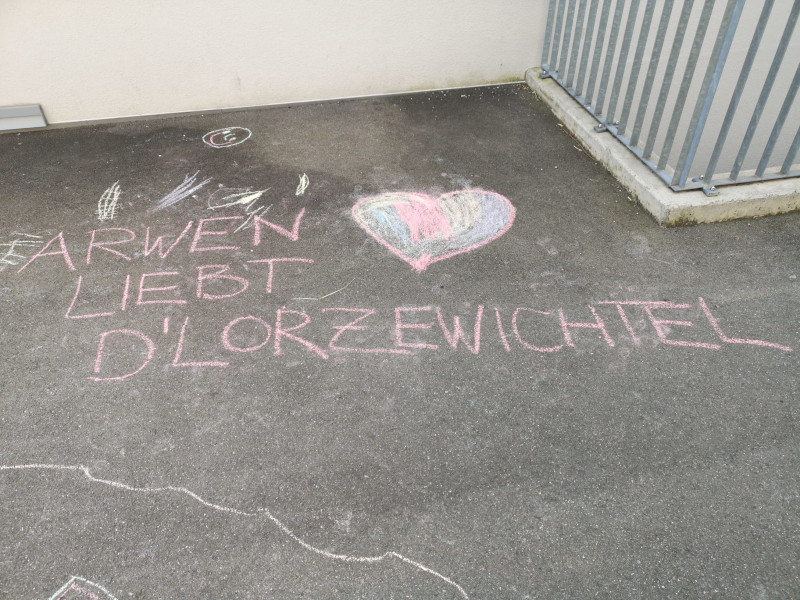 ARWEN
LIEBT
D'LORZEWICHTEL